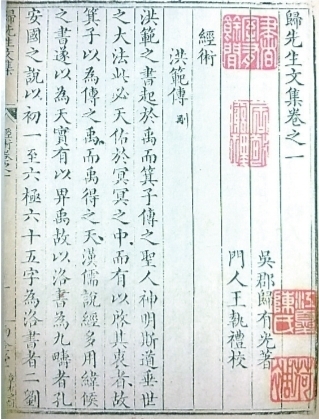 歸先生文集卷之一
吳郡歸有光著
門人王執禮校
經術
洪範傳
洪範之書起於禹而箕子傳之聖人神明斯道垂世
之大法此必天佑於冥冥之中而有以啓其衷者故
箕子以為傳之禹而禹得之天漢儒說經多用緯候
之書遂以為天實有以畀禹故以洛書為九疇者孔
安國之說以初一至六極六十五字為洛書者二劉
歸先生文集